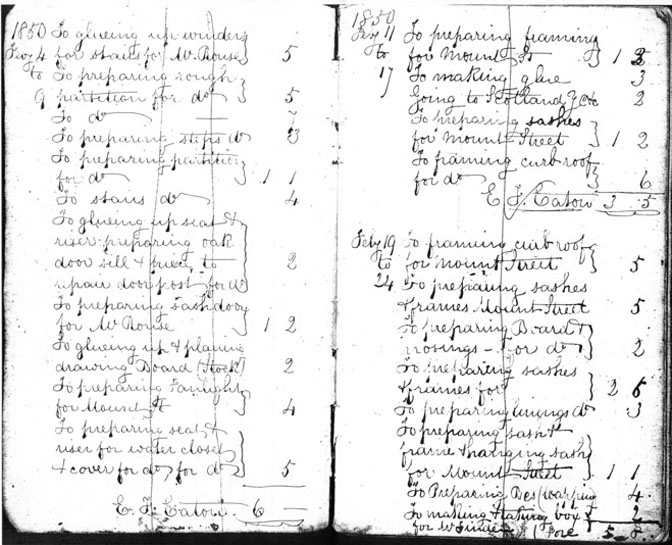 1850 To glueing up winders
Feby 4 for stairs for Mr. Rouse } 5
to To preparing rough
9 partition for do } 5
To do — 7
To preparing steps do 3
To preparing partition
for do } 1 1
To stairs do 4
To glueing up seat &
riser preparing oak
door sill & piece to 2
repair door post for do
To preparing sash door
for Mr Rouse } 1 2
To glueing up & planing
drawing Board (Stock) 2
To preparing Fanlight
for Mount St } 4
To preparing seat &
riser for water closet
& cover for do for do } 5
E. J. Eatow 6 —
1850
Feby 11 To preparing framing
to for Mount St } 1
17 To making glue 3
Going to Scotland Y 2
To preparing sashes
for Mount Street } 1 2
To framing curb roof
for do } 6
E J. Eatow 3 5
Feby 19 To framing curb roof
to for Mount Street } 5
24 To preparing sashes
& frames Mount Street 5
To preparing Board &
nosings — for do } 2
To preparing sashes
& frames for } 2 6
To preparing linings do 3
To preparing sash &
frame & hanging sash
for Mount Street } 1 1
To Preparing 4
To making & box } 2
for W 5